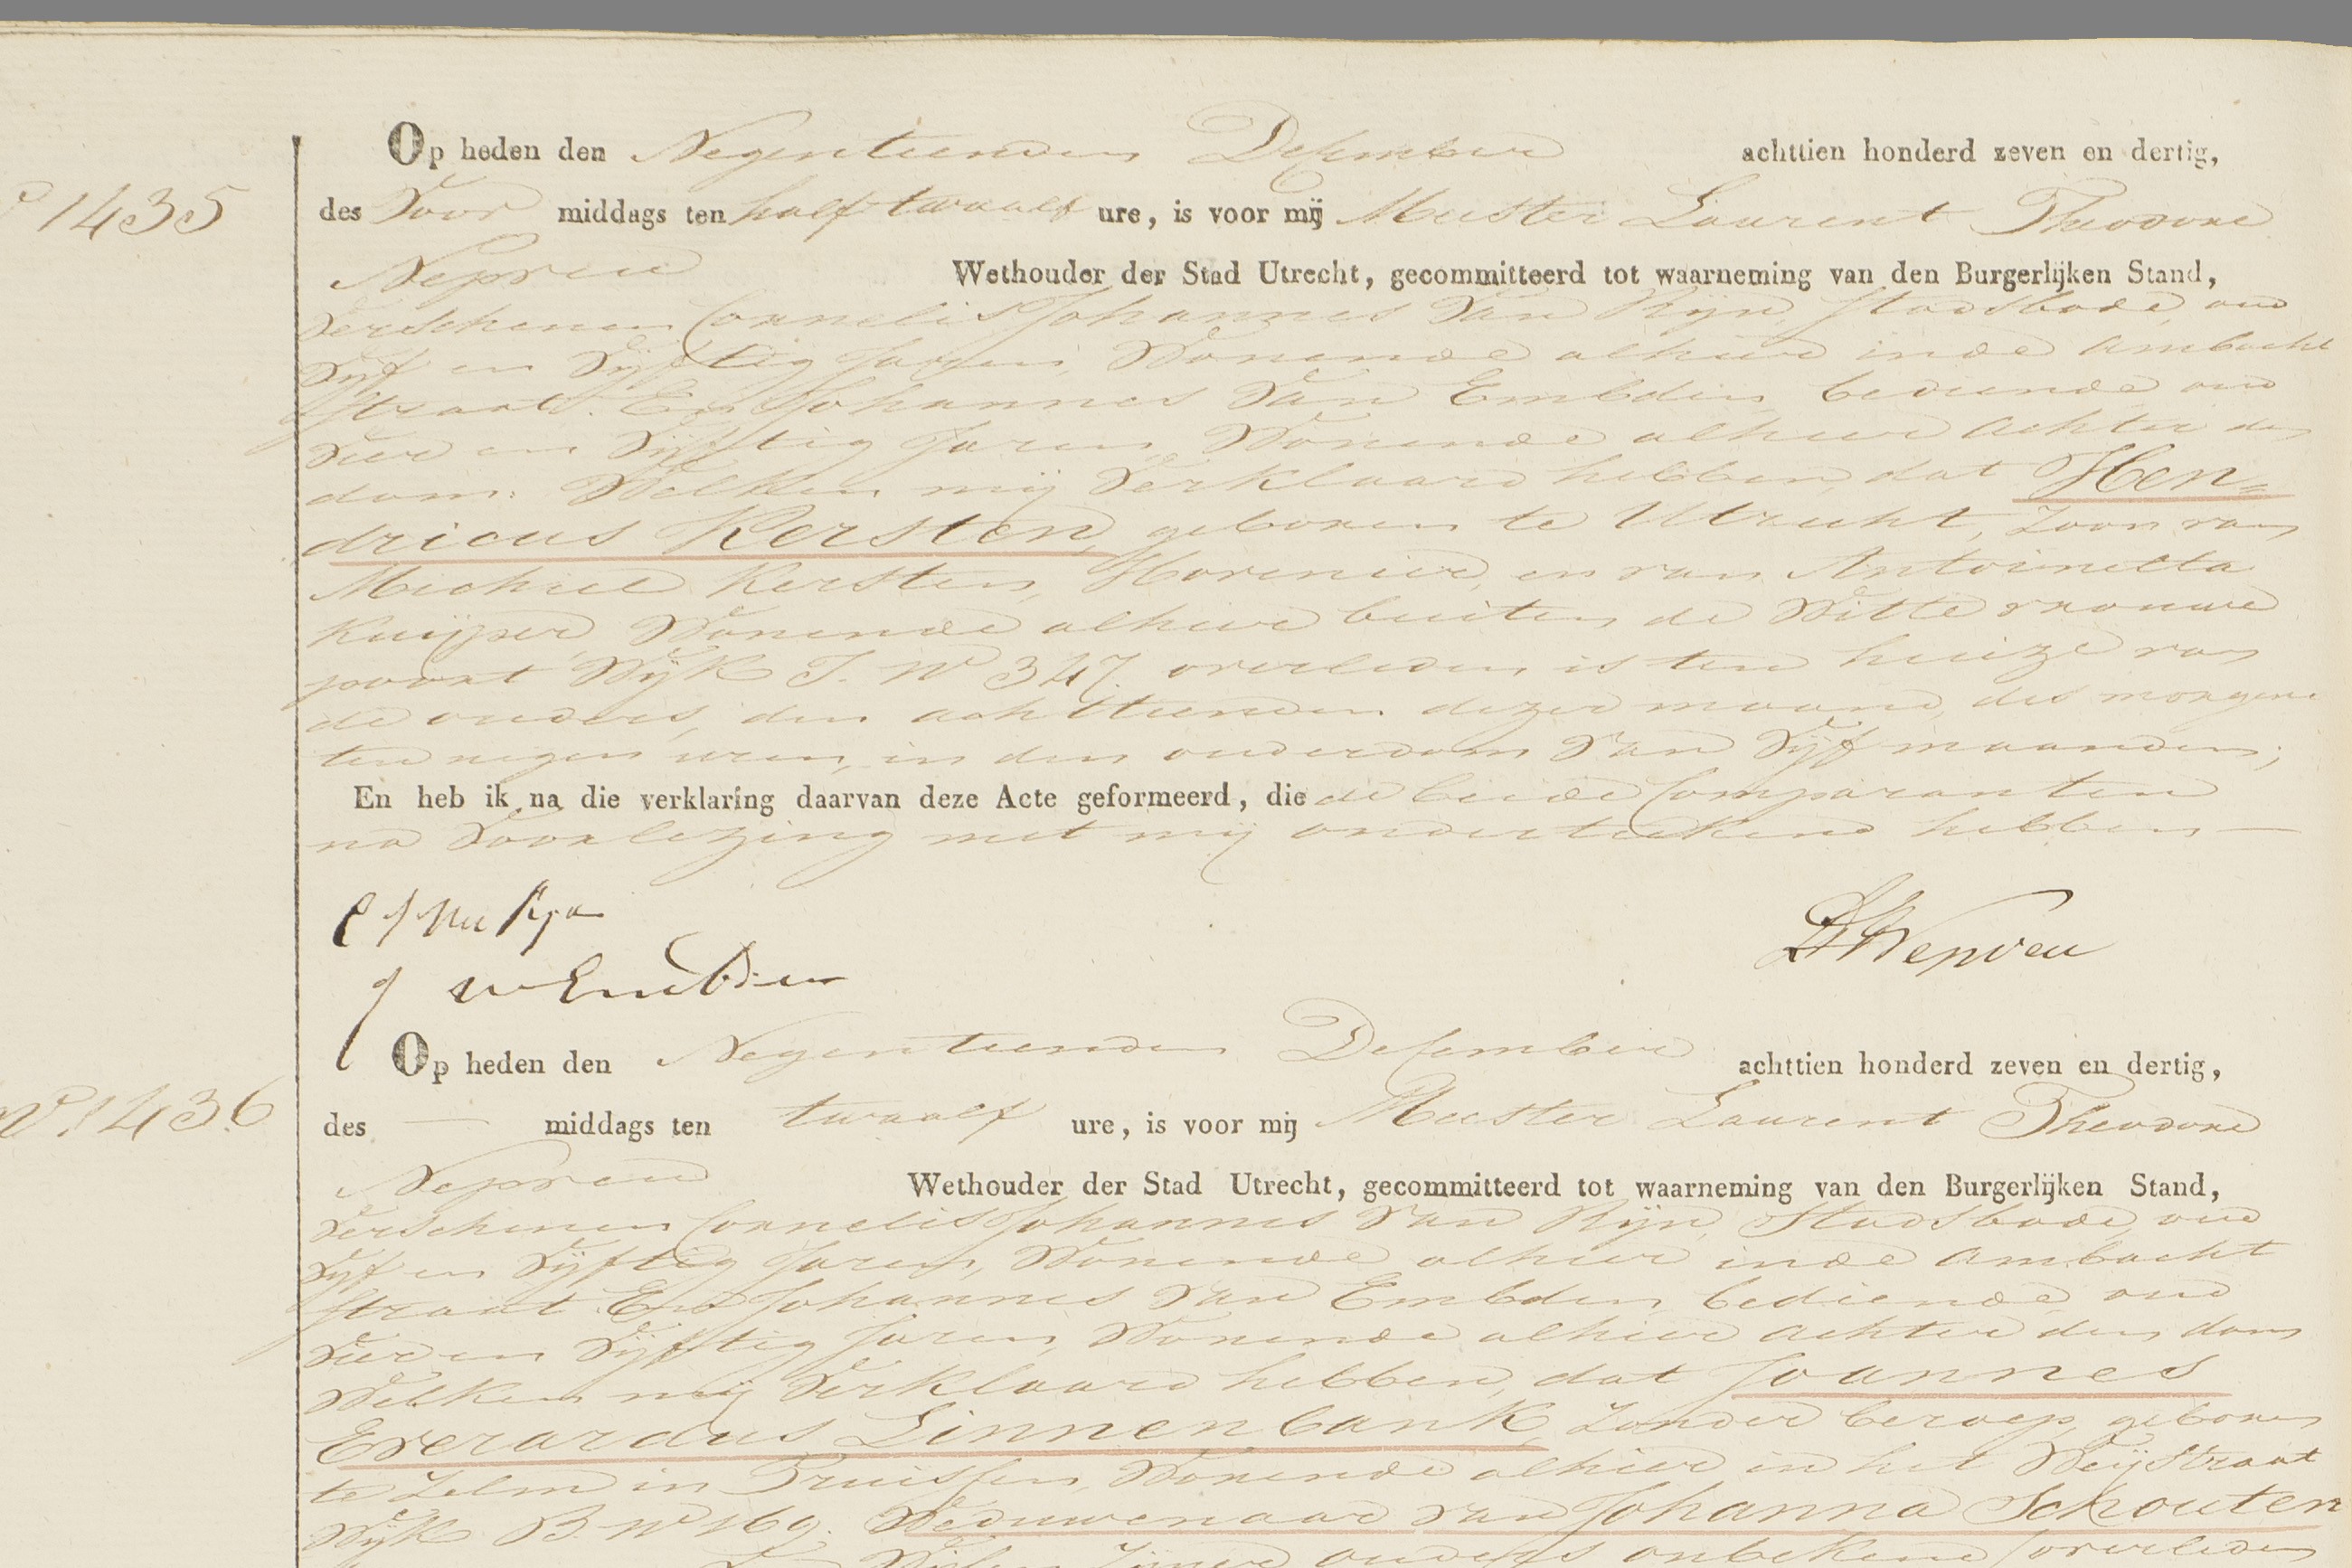 Op heden den Negentienden December achttien honderd zeven en dertig,
No 1435
des Voor middags ten half twaalf ure, is voor mij Meester Laurent Theodore
Nepveu Wethouder der Stad Utrecht, gecommitteerd tot waarneming van den Burgerlijken Stand,
Verschenen Cornelis Johannes van Rijn, Stadsbode, oud
Vijf en Vijftig Jaren, Wonende alhier inde Ambacht
straat. En Johannes van Embden, bediende oud
Vier en Vijftig Jaren, Wonende alhier achter den
dom. Welken mij Verklaard hebben, dat Hen=
dricus Kersten, geboren te Utrecht, zoon van
Michiel Kersten, Hovenier, en van Antoinetta
Kuijper, Wonende alhier buiten de Witte vrouwe
poort Wijk I. No 347. overleden is ten huize van
de ouders, den achttienden dezer maand, des morgens
ten negen uren, in den ouderdom van Vijf maanden;
En heb ik na die verklaring daarvan deze Acte geformeerd, die de beide Comparanten
na Voorlezing met mij onderteekend hebben —
C J van Rijn
J van Embden
LT Nepveu
Op heden den Negentienden December achttien honderd zeven en dertig,
No 1436
des — middags ten twaalf ure, is voor mij Meester Laurent Theodore
Nepveu Wethouder der Stad Utrecht, gecommitteerd tot waarneming van den Burgerlijken Stand,
Verschenen Cornelis Johannes van Rijn, Stadsbode, oud
Vijf en Vijftig Jaren, Wonende alhier inde Ambacht
straat. En Johannes van Embden, bediende oud
Vier en Vijftig Jaren, Wonende alhier achter den dom
Welken mij Verklaard hebben, dat Joannes
Everardus Linnenbank, zonder beroep, geboren
te Zelm in Pruissen, Wonende alhier in het Weijstraat
Wijk B No 169. Weduwenaar van Johanna Schouten
zijner ouders onbekend overleden